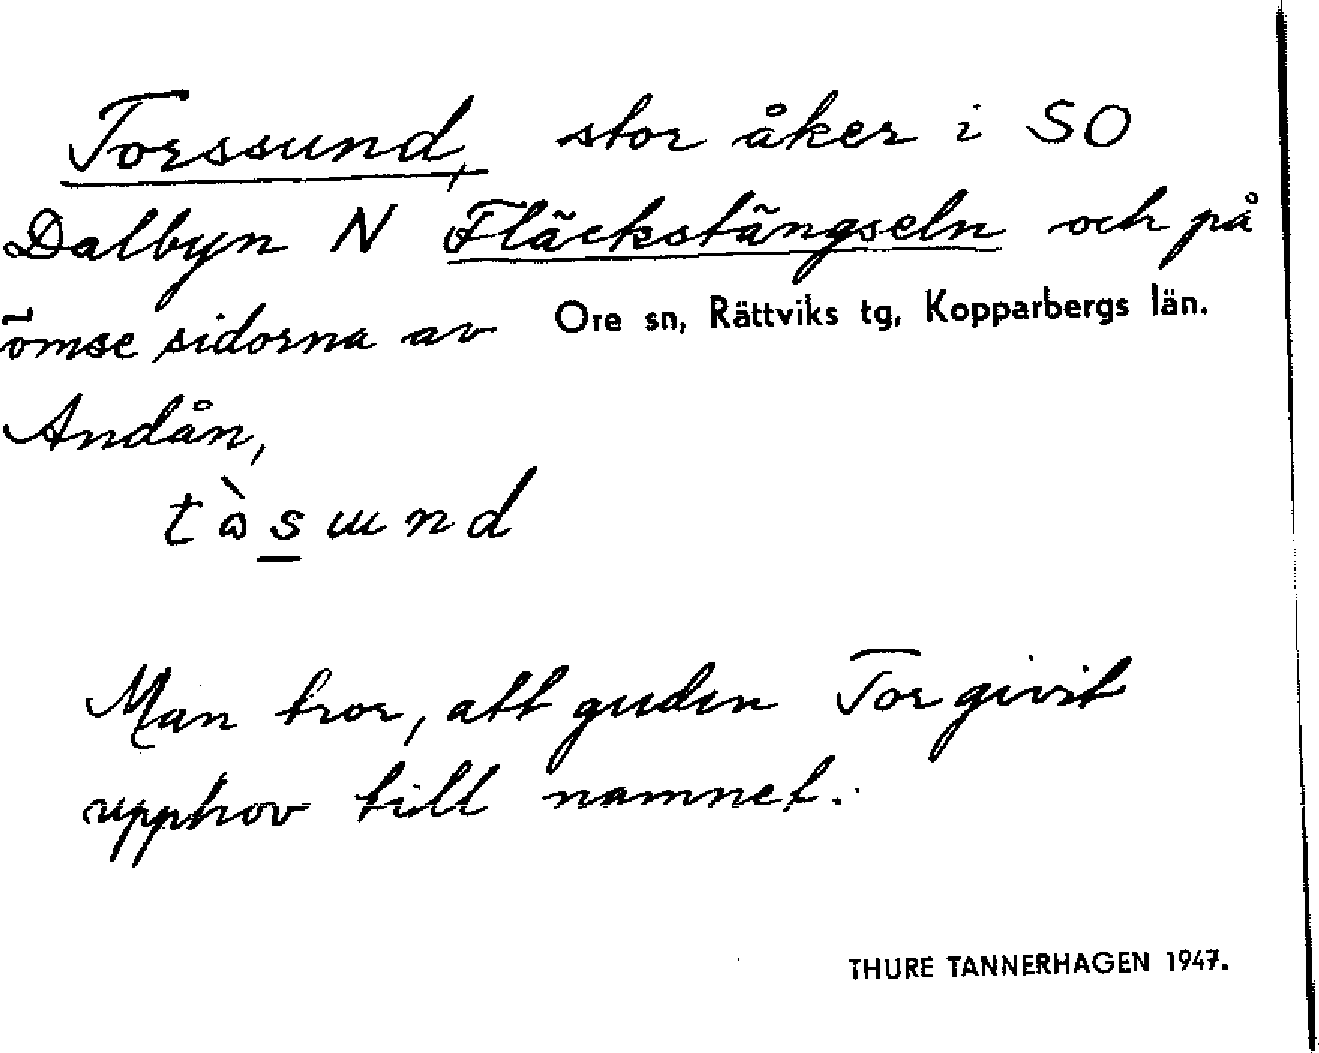 Torssund, stor åker i SO
Dalbyn N Fläckstängseln och på
ömse sidorna av
Ore sn, Rättviks tg, Kopparbergs län.
Andån,
tòsɯnd
Man tror, att guden Tor givit
upphov till namnet.
THURE TANNERHAGEN 1947.